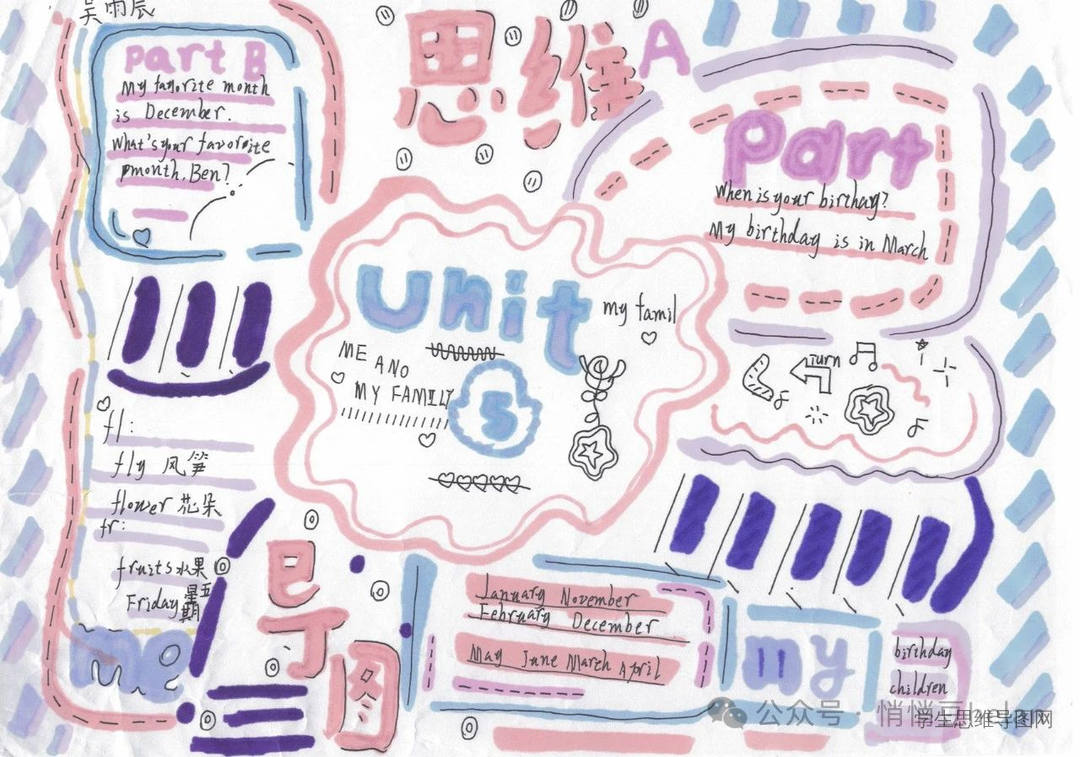 吴雨辰
思维导图
Part B
My favorite month
is December.
What's your favoroite
month, Ben?
Part A
When is your birthay?
My birthday is in March
Unit 5
my famil
ME ANO
MY FAMILY
Turn
fl:
fly 风筝
flower 花朵
fr:
fruits 水果
Friday 星五期
me
January November
February December
May June March April
my
birthday
children
公众号
学生思维导图网